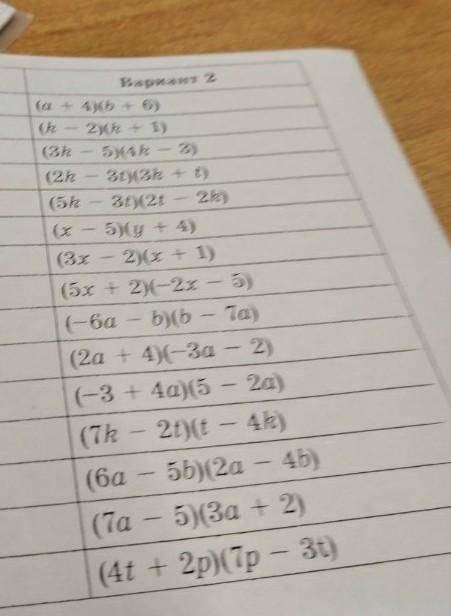 Вариант 2
(a + 4)(b + 6)
(k − 2)(k + 1)
(3k − 5)(4k − 3)
(2k − 3t)(3k + t)
(5k − 3t)(2t − 2k)
(x − 5)(y + 4)
(3x − 2)(x + 1)
(5x + 2)(−2x − 5)
(−6a − b)(b − 7a)
(2a + 4)(−3a − 2)
(−3 + 4a)(5 − 2a)
(7k − 2t)(t − 4k)
(6a − 5b)(2a − 4b)
(7a − 5)(3a + 2)
(4t + 2p)(7p − 3t)